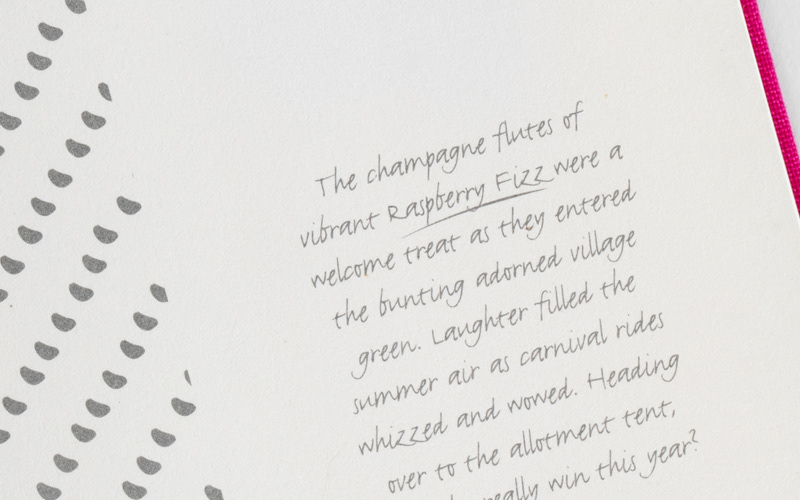 The champagne flutes of
vibrant Raspberry Fizz were a
welcome treat as they entered
the bunting adorned village
green. Laughter filled the
summer air as carnival rides
whizzed and wowed. Heading
over to the allotment tent,
really win this year?